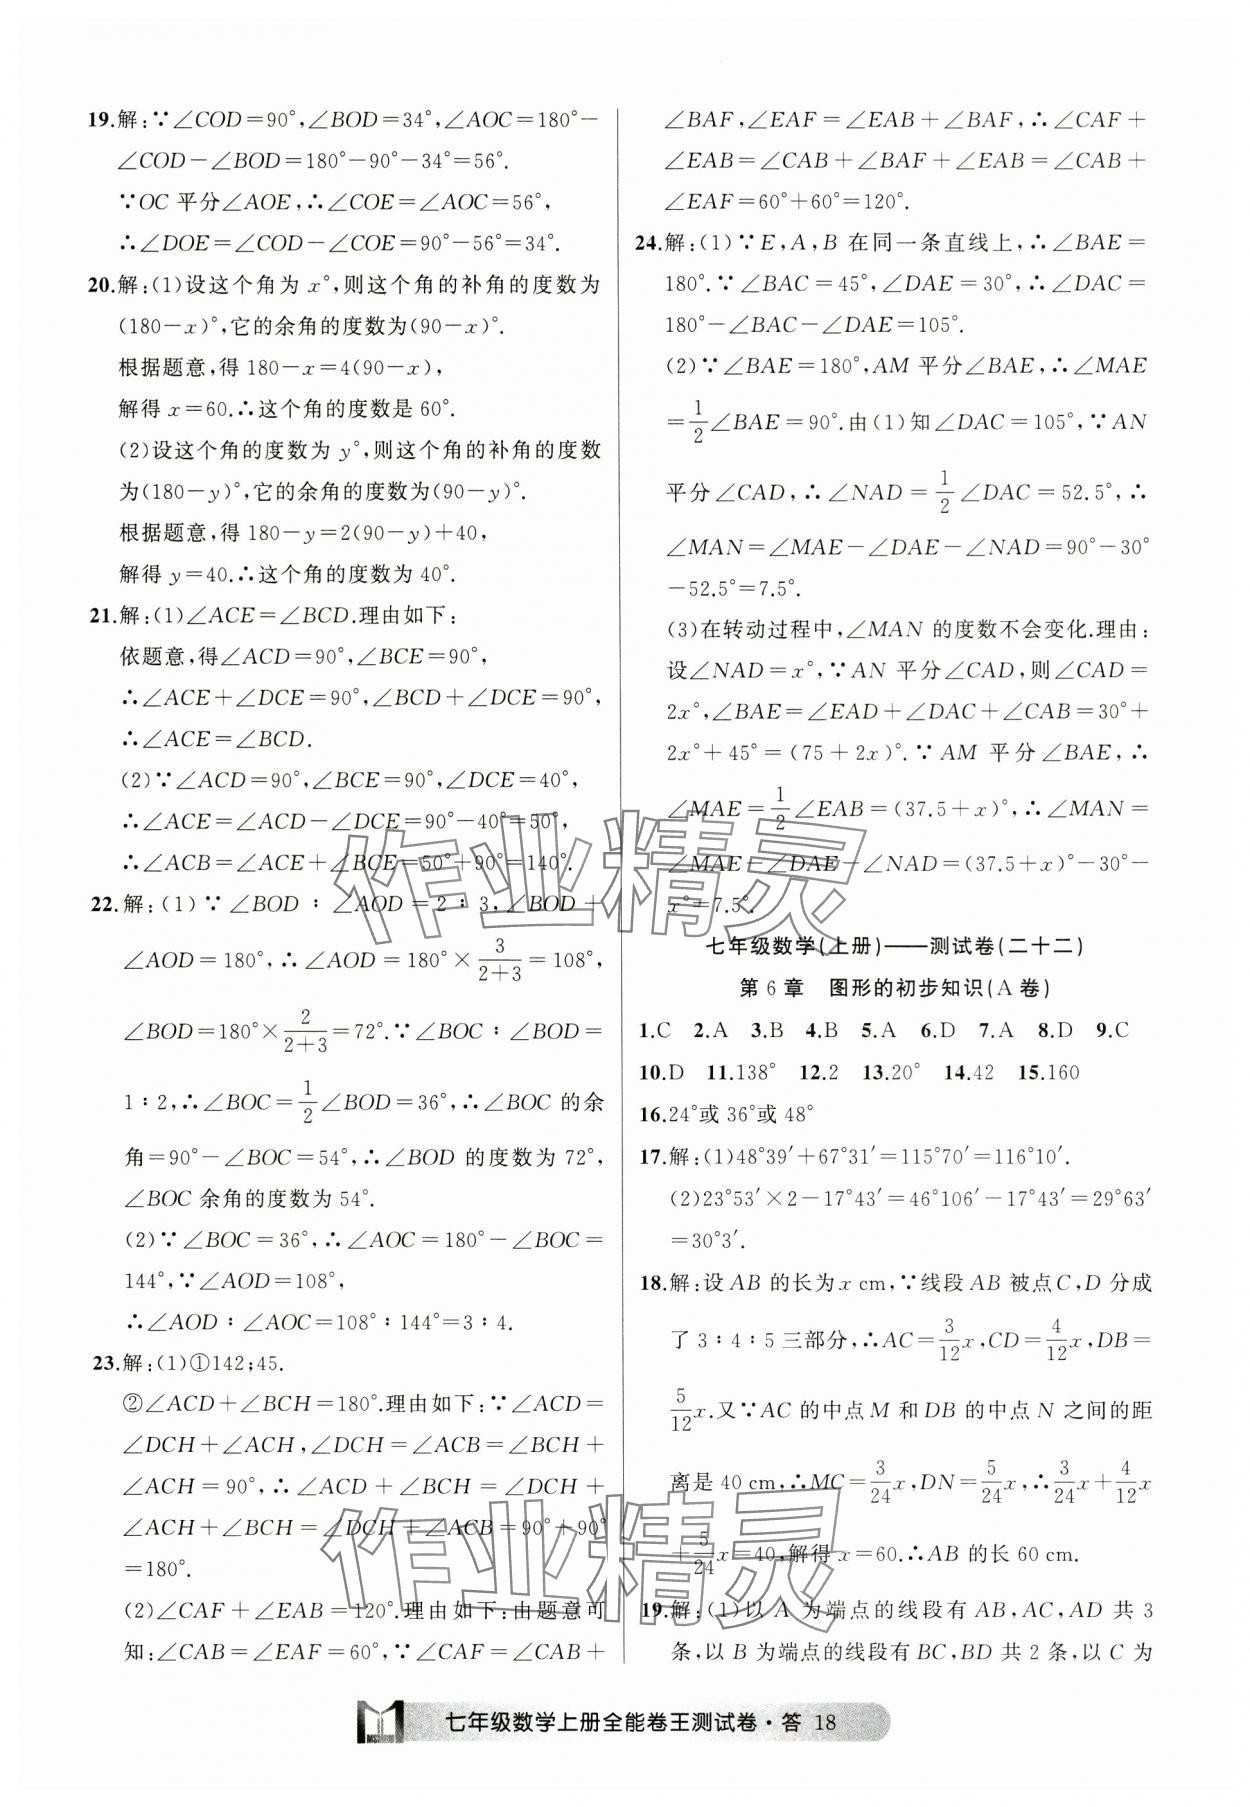 19.解:∵∠COD=90°,∠BOD=34°,∠AOC=180°-
∠COD-∠BOD=180°-90°-34°=56°.
∵OC 平分∠AOE,∴∠COE=∠AOC=56°,
∴∠DOE=∠COD-∠COE=90°-56°=34°.
20.解:(1)设这个角为 x°,则这个角的补角的度数为
(180-x)°,它的余角的度数为(90-x)°.
根据题意,得 180-x=4(90-x),
解得 x=60.∴这个角的度数是 60°.
(2)设这个角的度数为 y°,则这个角的补角的度数
为(180-y)°,它的余角的度数为(90-y)°.
根据题意,得 180-y=2(90-y)+40,
解得 y=40.∴这个角的度数为 40°.
21.解:(1)∠ACE=∠BCD.理由如下:
依题意,得∠ACD=90°,∠BCE=90°,
∴∠ACE+∠DCE=90°,∠BCD+∠DCE=90°,
∴∠ACE=∠BCD.
(2)∵∠ACD=90°,∠BCE=90°,∠DCE=40°,
∴∠ACE=∠ACD-∠DCE=90°-40°=50°,
∴∠ACB=∠ACE+∠BCE=50°+90°=140°.
22.解:(1)∵∠BOD∶∠AOD=2∶3,∠BOD+
∠AOD=180°,∴∠AOD=180°×3/(2+3)=108°,
∠BOD=180°×2/(2+3)=72°.∵∠BOC∶∠BOD=
1∶2,∴∠BOC=1/2∠BOD=36°,∴∠BOC 的余
角=90°-∠BOC=54°,∴∠BOD 的度数为 72°,
∠BOC 余角的度数为 54°.
(2)∵∠BOC=36°,∴∠AOC=180°-∠BOC=
144°,∵∠AOD=108°,
∴∠AOD∶∠AOC=108°∶144°=3∶4.
23.解:(1)①142;45.
②∠ACD+∠BCH=180°.理由如下:∵∠ACD=
∠DCH+∠ACH,∠DCH=∠ACB=∠BCH+
∠ACH=90°,∴∠ACD+∠BCH=∠DCH+
∠ACH+∠BCH=∠DCH+∠ACB=90°+90°
=180°.
(2)∠CAF+∠EAB=120°.理由如下:由题意可
知:∠CAB=∠EAF=60°,∵∠CAF=∠CAB+
∠BAF,∠EAF=∠EAB+∠BAF,∴∠CAF+
∠EAB=∠CAB+∠BAF+∠EAB=∠CAB+
∠EAF=60°+60°=120°.
24.解:(1)∵E,A,B 在同一条直线上,∴∠BAE=
180°.∵∠BAC=45°,∠DAE=30°,∴∠DAC=
180°-∠BAC-∠DAE=105°.
(2)∵∠BAE=180°,AM 平分∠BAE,∴∠MAE
=1/2∠BAE=90°.由(1)知∠DAC=105°,∵AN
平分∠CAD,∴∠NAD=1/2∠DAC=52.5°,∴
∠MAN=∠MAE-∠DAE-∠NAD=90°-30°
-52.5°=7.5°.
(3)在转动过程中,∠MAN 的度数不会变化.理由:
设∠NAD=x°,∵AN 平分∠CAD,则∠CAD=
2x°,∠BAE=∠EAD+∠DAC+∠CAB=30°+
2x°+45°=(75+2x)°.∵AM 平分∠BAE,∴
∠MAE=1/2∠EAB=(37.5+x)°,∴∠MAN=
∠MAE-∠DAE-∠NAD=(37.5+x)°-30°-
x°=7.5°.
七年级数学(上册)——测试卷(二十二)
第 6 章 图形的初步知识(A 卷)
1.C 2.A 3.B 4.B 5.A 6.D 7.A 8.D 9.C
10.D 11.138° 12.2 13.20° 14.42 15.160
16.24°或 36°或 48°
17.解:(1)48°39′+67°31′=115°70′=116°10′.
(2)23°53′×2-17°43′=46°106′-17°43′=29°63′
=30°3′.
18.解:设 AB 的长为 x cm,∵线段 AB 被点C,D 分成
了 3∶4∶5 三部分,∴AC=3/12x,CD=4/12x,DB=
5/12x.又∵AC 的中点 M 和 DB 的中点 N 之间的距
离是 40 cm,∴MC=3/24x,DN=5/24x,∴3/24x+4/12x
+5/24x=40,解得 x=60.∴AB 的长 60 cm.
19.解:(1)以 A 为端点的线段有 AB,AC,AD 共 3
条,以 B 为端点的线段有 BC,BD 共 2 条,以 C 为
作业精灵
作业精灵
七年级数学上册全能卷王测试卷·答 18